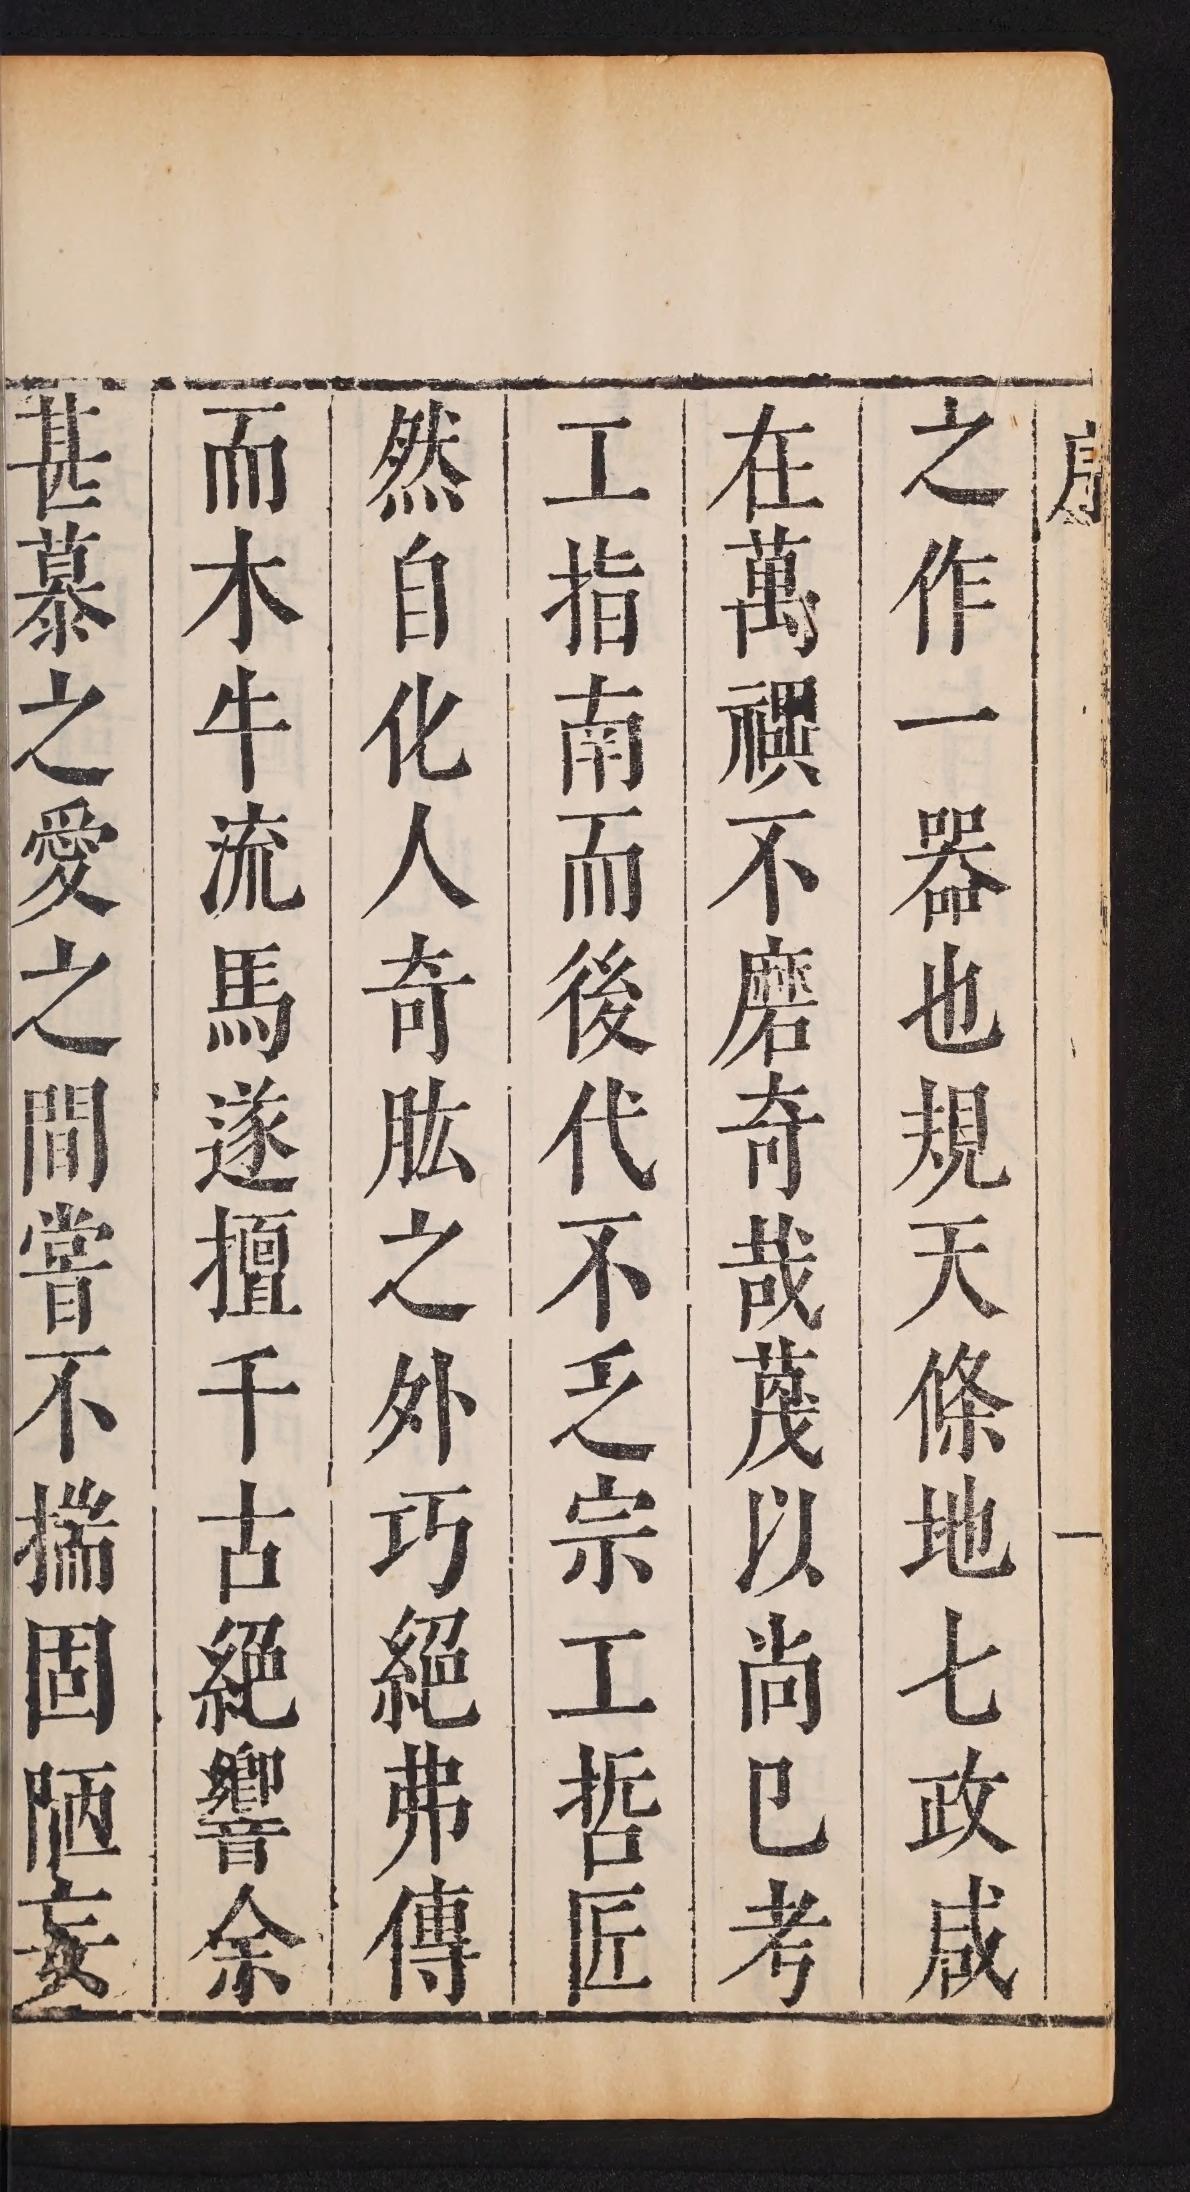 序 一
之作一器也規天條地七政咸
在萬禩不磨奇哉蔑以尚已考
工指南而後代不乏宗工哲匠
然自化人奇肱之外巧絕弗傳
而木牛流馬遂擅千古絕響余
甚慕之愛之間嘗不揣固陋妄